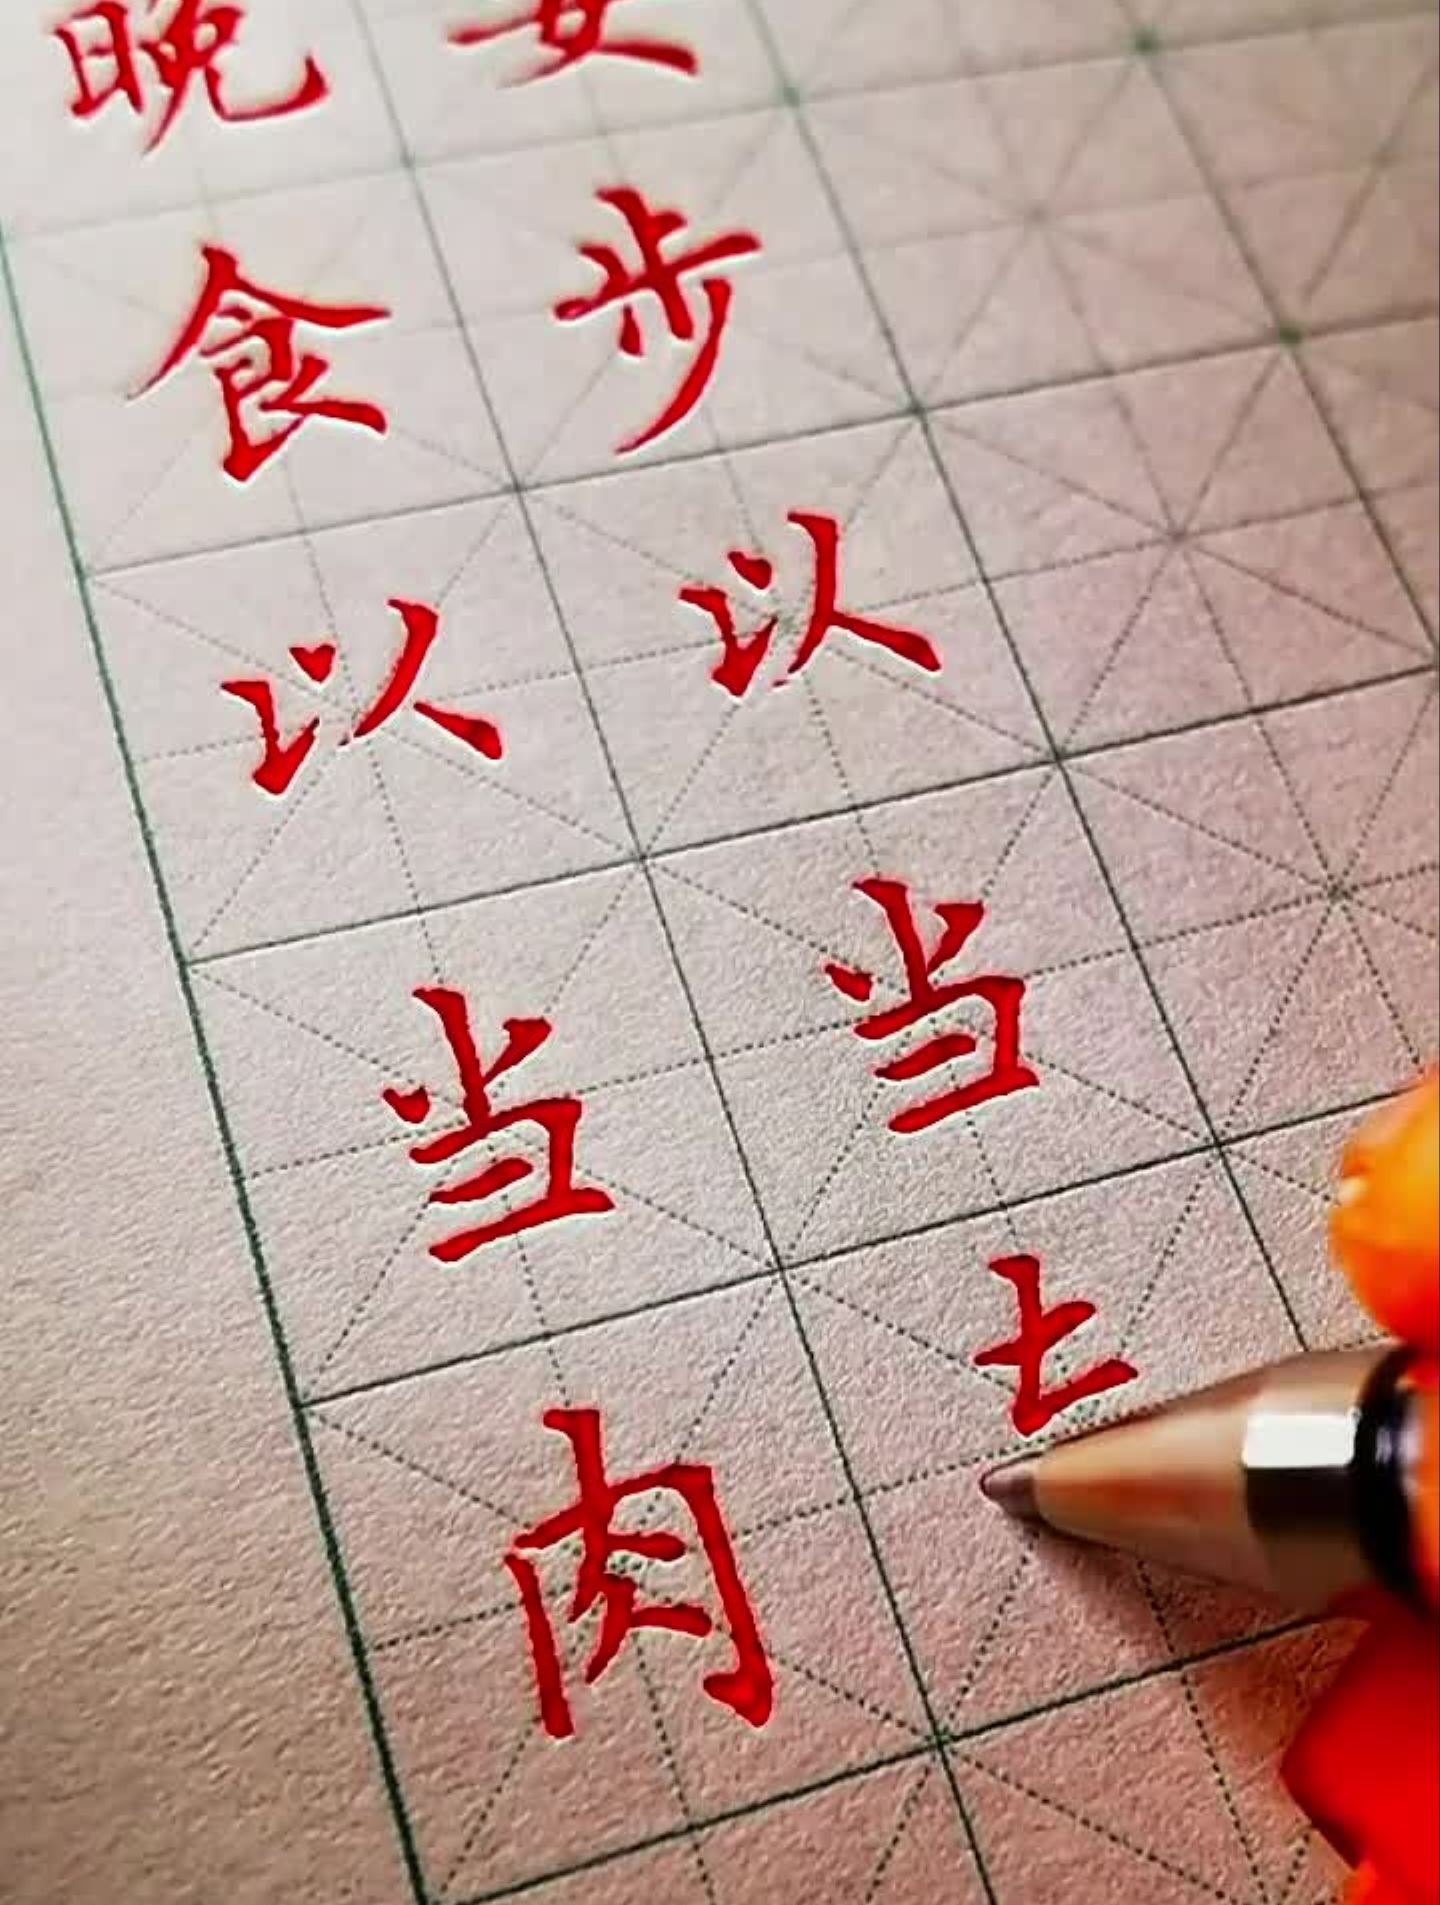 晚食以当肉
安步以当